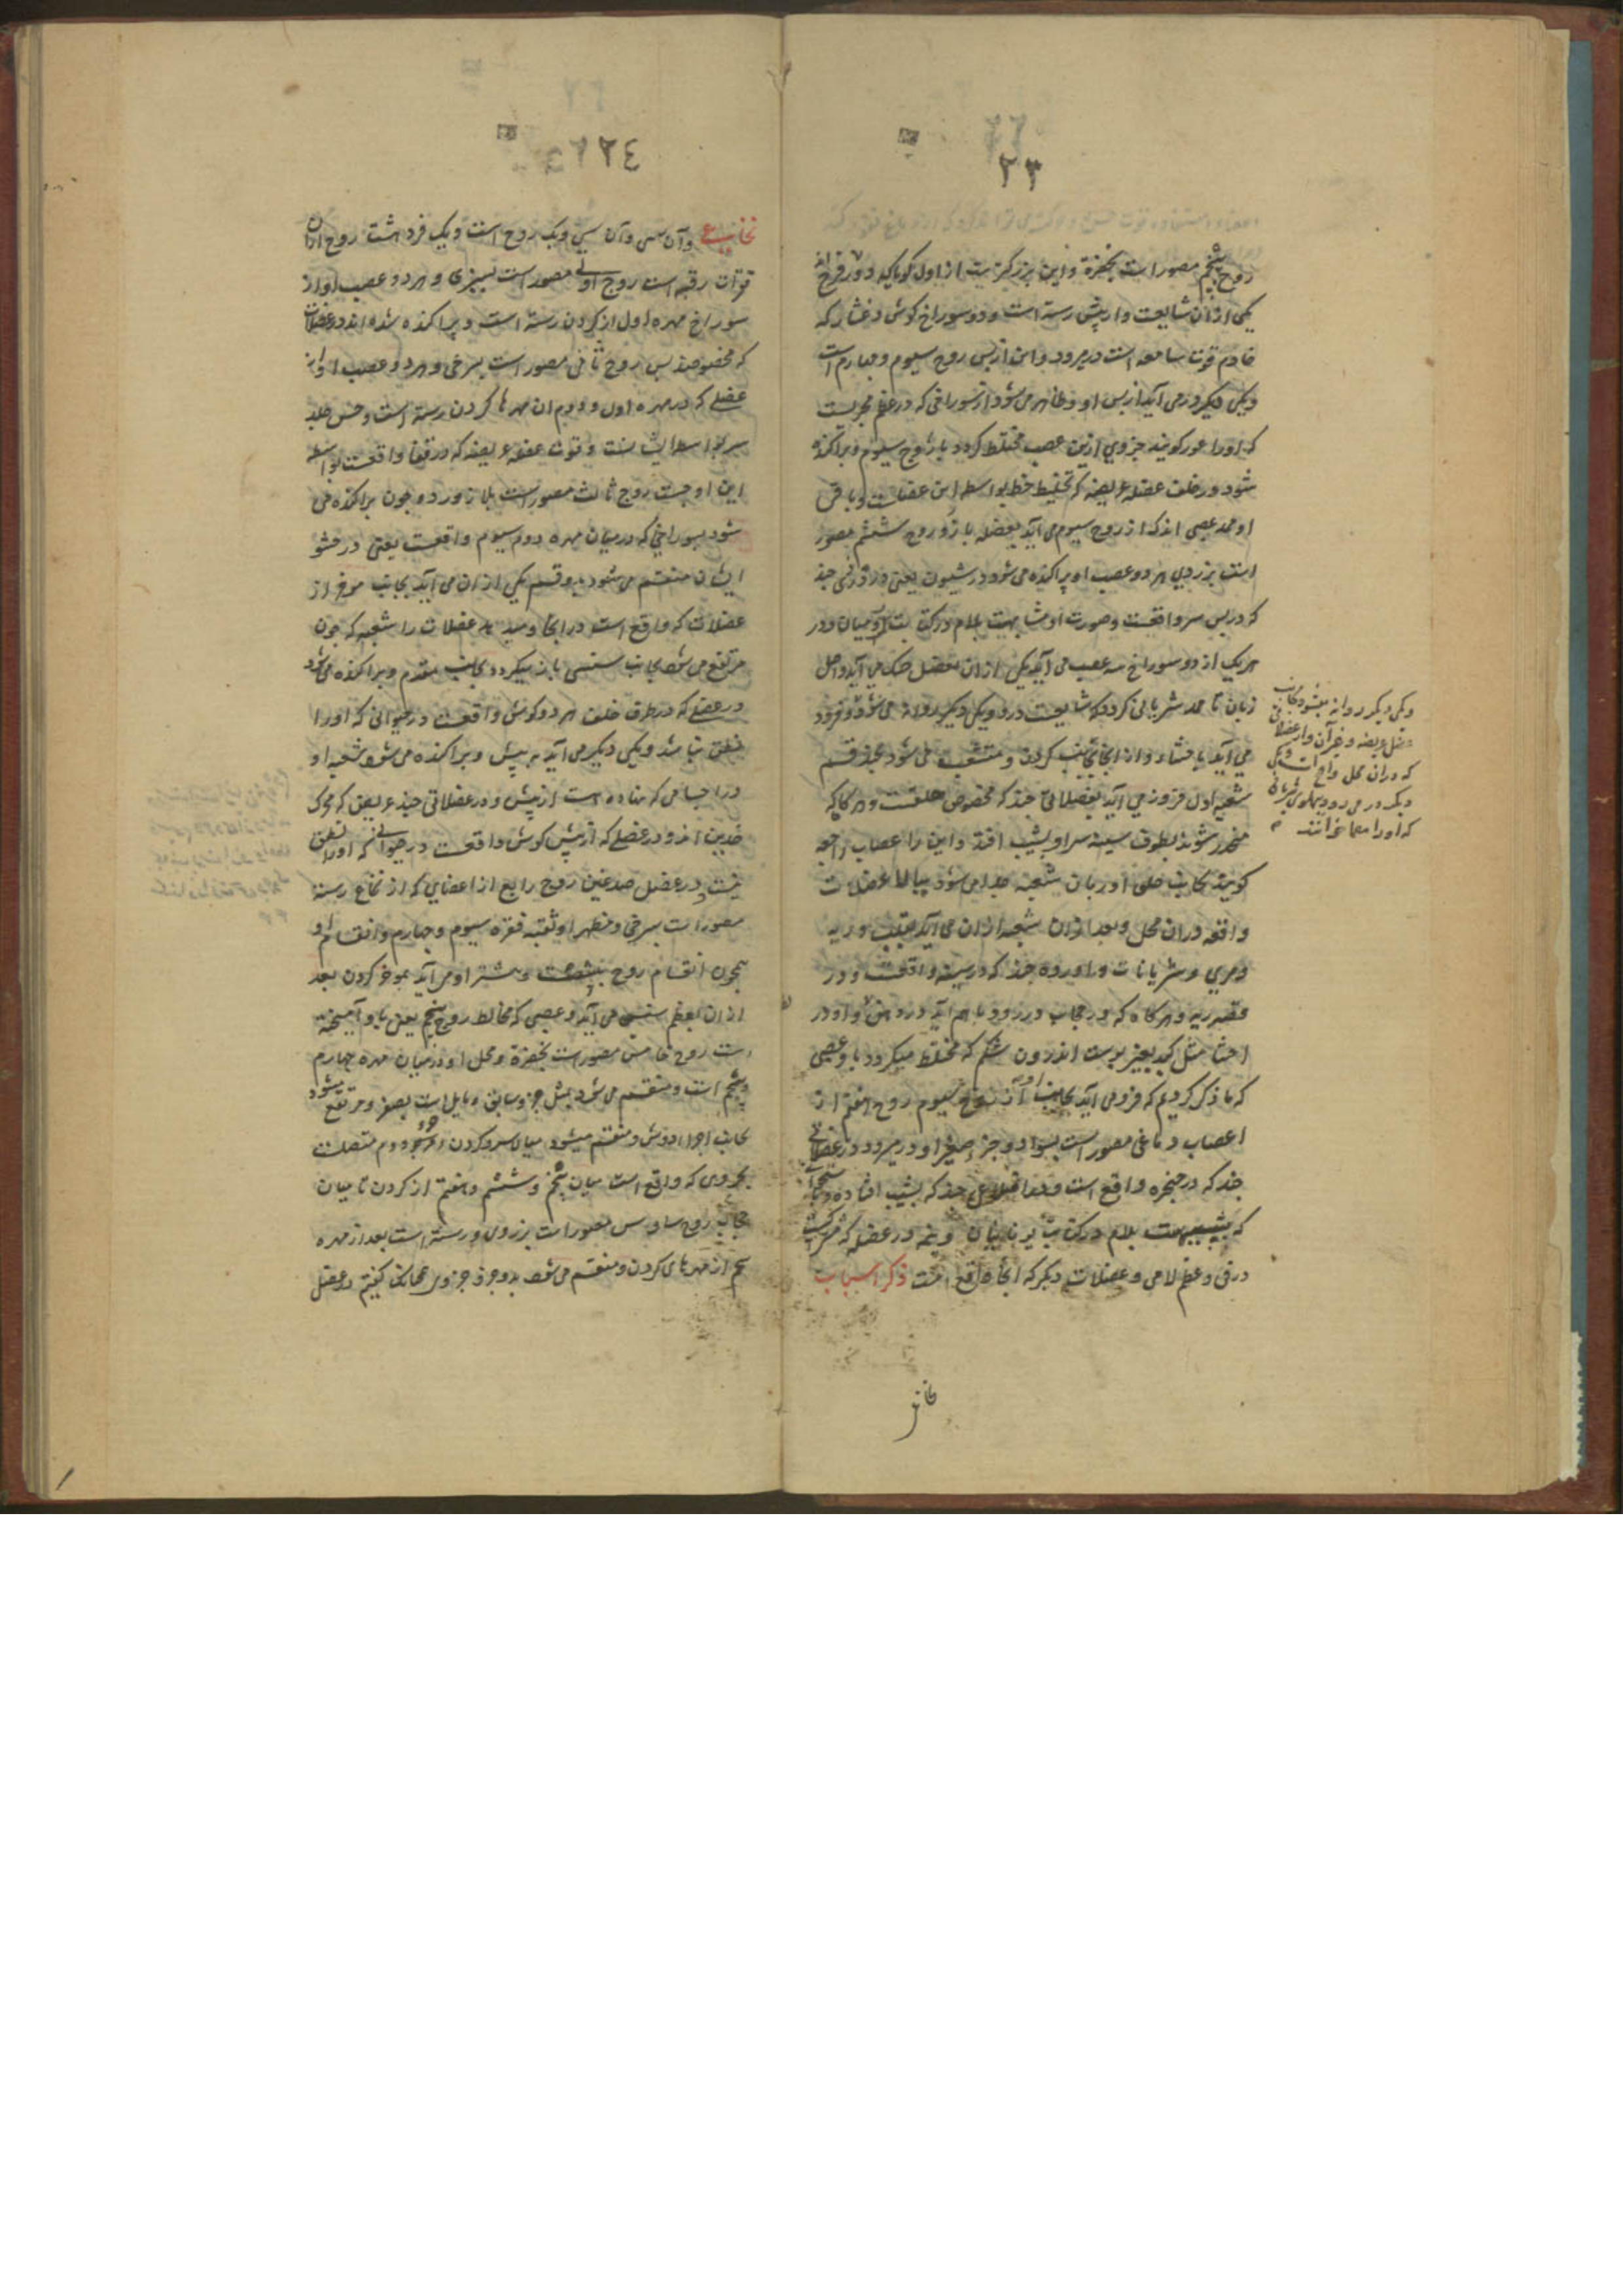 ۲۳
زوج پنجم مصور است بخضرة و این بزرکتر است از اول کویا که دو زوج اند
یکی از آن شایعت و از پیش رسته است و دو سوراخ کوش و غشا که
خادم قوت سامعه است در میرود و این از پس زوج سیوم و چهارم است
و یکی دیکر فرو می آید از پس او و ظاهر می شود از سوراخی که در عظم حجریست
که او را اعور کویند جزوی ازین عصب مختلط کردد با زوج سیوم و پراکنده
شود در خلف عضله عریضه که تخلیط خط بواسطه این عضلست و باقی
او ممد عصبی اند که از زوج سیوم می آید بعضله بازو زوج ششم مصور
است بزردی هر دو عصب او پراکنده می شود در شیون یعنی درزی چند
که در پس سر واقعست و صورت او مشابهست بلام در کتابت یونانیان و در
هر یک از دو سوراخ سه عصب می آید یکی از ان بعضل حنک می آید و اصل
زبان تا ممد شریانی کردد که شایعست درو و یکی دیکر روانه می شود و فرود
می آید با حشاء و از انجا بجانب کردن و منشعب می شود بچند قسم
شعبه اول فرود می آید بعضلاتی چند که مخصوص حلقست و هر کاه که
منحدر شوند بطرف سینه سر او بشیب افتد و این را اعصاب راجعه
کویند بجانب حلق او ربان شعبه جدا می شود ببالا عضلات
واقعه در ان محل و بعد از ان شعبه از ان می آید بقلب و ریه
و مری و شریانات و اورده چند که در سینه واقعست و در
قصبه ریه و هر کاه که در حجاب درزود با هم آید در دهن و او در
احشا مثل کبد بغیر پوست اندرون شکم که مختلط میکردد با و عصبی
که ما ذکر کردیم که فرو می آید بجانب او از زوج سیوم زوج هفتم از
اعصاب دماغی مصور است بسواد و جزء صغیر او در میرود در عضلاتی
چند که در حنجره واقع است و در اضلاعی چند که بشیب افتاده و بجانبی
که شبیهست بلام در کتابت یونانیان و نیمه در عضله که مشترکست
درقی و عظم لامی و عضلات دیکر که انجا واقع است ذکر اعصاب
و یکی دیکر روانه میشود بجانب
عضل عریضه و غیر آن و از عضلات
که در ان محل واقع است و یکی
دیکر در می رود پهلوی شریانی
که او را معما خوانند
نخاع
۲٤
نخاعی و آن سی و آن سی و یک زوج است و یک فرد هشت زوج از ان
قوات رقبه است زوج اولی مصور است بسبزی و هر دو عصب او از
سوراخ مهره اول از کردن رسته است و پراکنده شده اند در عضلات
که مخصوصند بس زوج ثانی مصور است بسرخی و هر دو عصب او از
عضلی که در مهره اول و دوم ان مهرهای کردن رسته است و حس جلد
سر بواسطه ایشانست و قوت عضله عریضه که در قفا واقعست بواسطه
این اوجست زوج ثالث مصور است بلازورد و چون پراکنده می
شود بسوراخی که در میان مهره دوم سیوم واقعست یعنی در حشو
ایشان منقسم می شود بدو قسم یکی از ان می آید بجانب موخر از
عضلات که واقع است در انجا و میدهد عضلات را شعبه که چون
مرتفع می شود بجانب سنسن باز میکردد بجانب مقدم و پراکنده می شود
در عضلی که در طرف خلف هر دو کوش واقعست در حیوانی که او را
نطق نباشد و یکی دیکر می آید به پیش و پراکنده می شود شعبه او
در اجسامی که نهاده است از پیش و در عضلاتی چند عریض که محرک
خدین اند و در عضلی که از پیش کوش واقعست در حیوانی که او را نطق
نیست و در عضل صدغین زوج رابع از اعضایی که از نخاع رسته
مصور است بسرخی و مظهر او ثقبه فقره سیوم و چهارم و انقسام او
همچون انقسام زوج پیشست و بیشتر او می آید بموخر کردن بعد
از ان بعظم سنسن می آید و عصبی که مخالط زوج پنجم یعنی با و آمیخته
است زوج خامس مصور است بخضرة و محل او در میان مهره چهارم
و پنجم است و منقسم می شود بمثل جزو سابق و مایل است بصغر و مرتفع میشود
بجانب اجزاء دوش و منقسم میشود میان سر و کردن و جزو دوم متصلست
بجزوی که واقع است میان پنجم و ششم و هفتم از کردن تا میان
حجاب زوج سادس مصور است بزردی و رسته است بعد از مهره
پنجم از مهرهای کردن و منقسم می شود بدو جزو جزوی همچنانک کفتیم در عضل